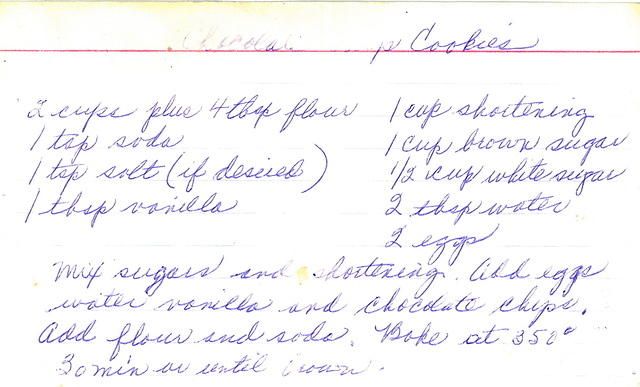 Chocolate p Cookies
2 cups plus 4 tbsp flour 1 cup shortening
1 tsp soda 1 cup brown sugar
1 tsp salt (if desired) 1/2 cup white sugar
1 tbsp vanilla 2 tbsp water
2 eggs
Mix sugars and shortening. Add eggs
water vanilla and chocolate chips.
Add flour and soda. Bake at 350°
30 min or until brown.